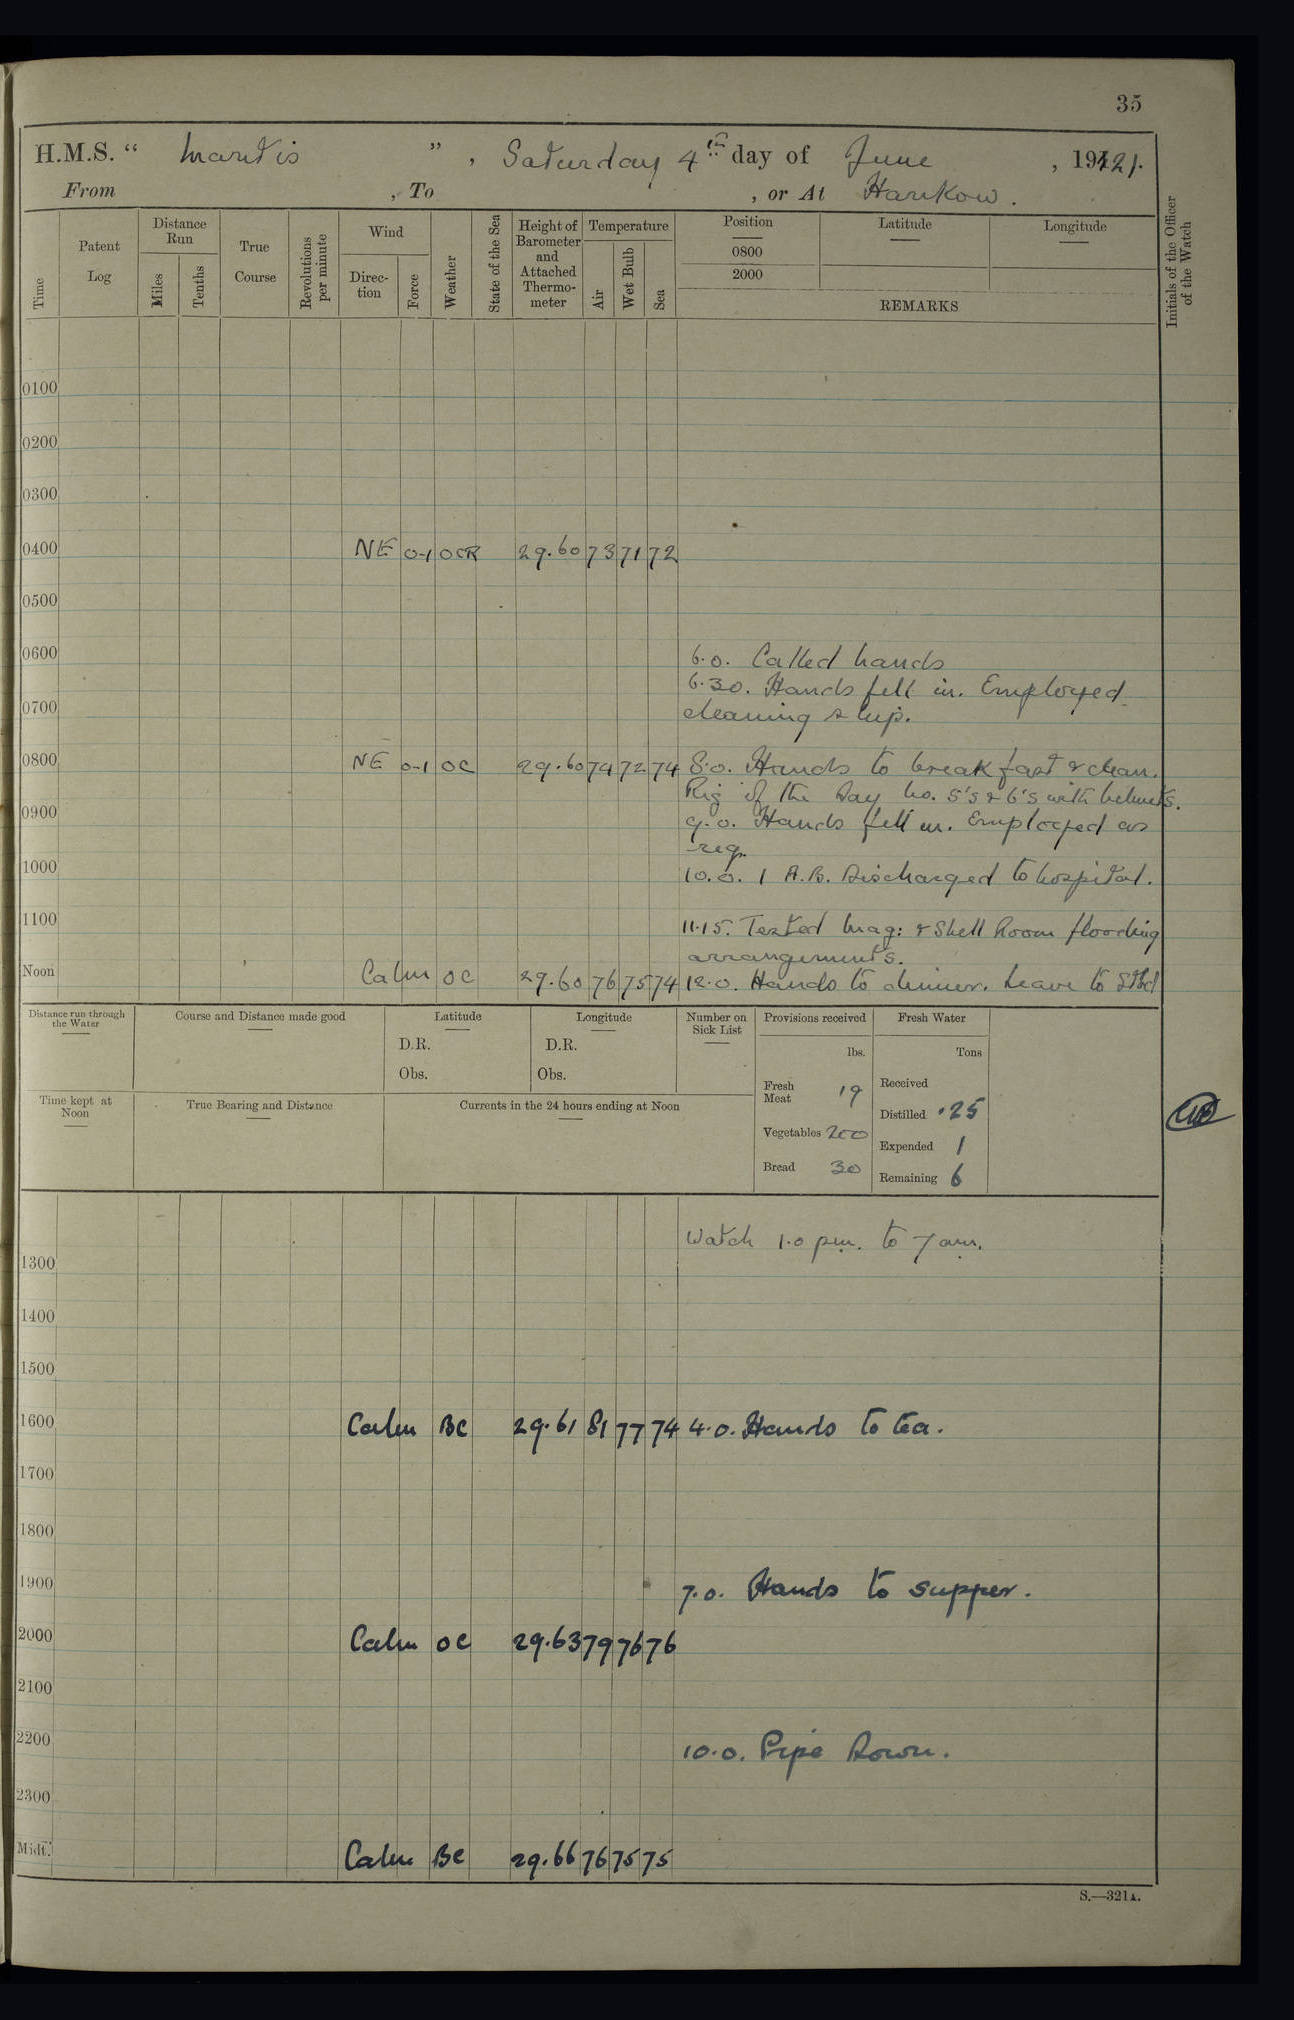 35
H.M.S. “ Mantis ” , Saturday 4th day of June , 1921.
From , To , or At Hankow.
Time
Patent Log
Distance Run
Miles
Tenths
True Course
Revolutions per minute
Wind
Direc-tion
Force
Weather
State of the Sea
Height of Barometer and Attached Thermo-meter
Temperature
Air
Wet Bulb
Sea
Position
0800
2000
Latitude
Longitude
REMARKS
Initials of the Officer of the Watch
0100
0200
0300
0400 NE 0-1 OCR 29.60 73 71 72
0500
0600 6.0. Called hands
6.30. Hands fell in. Employed
0700 cleaning ship.
0800 NE 0-1 OC 29.60 74 72 74 8.0. Hands to breakfast & clean.
Rig of the Day No. 5's & 6's with helmets.
0900 9.0. Hands fell in. Employed as
req.
1000 10.0. 1 A.B. Discharged to hospital.
1100 11.15. Tested Mag: & Shell Room flooding
arrangements.
Noon Calm OC 29.60 76 75 74 12.0. Hands to dinner. Leave to Stbd
Distance run through the Water
Course and Distance made good
Latitude
D.R.
Obs.
Longitude
D.R.
Obs.
Number on Sick List
Provisions received
lbs.
Fresh Meat 19
Vegetables 200
Bread 30
Fresh Water
Tons
Received
Distilled .25
Expended 1
Remaining 6
Time kept at Noon
True Bearing and Distance
Currents in the 24 hours ending at Noon
Watch 1.0 pm. to 7 am.
1300
1400
1500
1600 Calm BC 29.61 81 77 74 4.0. Hands to tea.
1700
1800
1900 7.0. Hands to supper.
2000 Calm OC 29.63 79 76 76
2100
2200 10.0. Pipe Down.
2300
Midt. Calm BC 29.66 76 75 75
S.—321A.